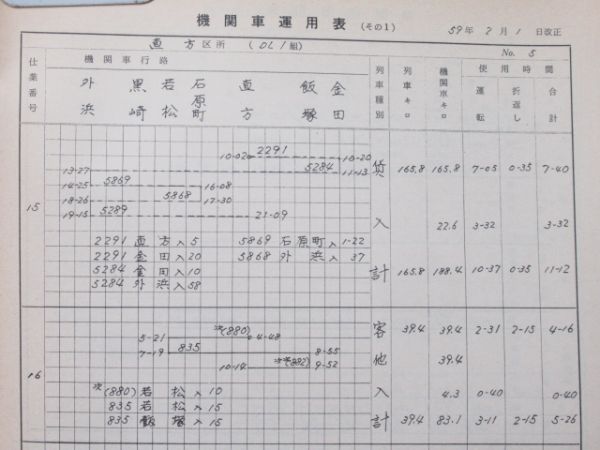 機関車運用表 (その1) 59年 2月 1日改正
直方区所 (DL1組) No. 5
仕業番号 機関車行路 列車種別 列車キロ 機関車キロ 使用時間
運転 折返し 合計
外浜 黒崎 若松 石原町 直方 飯塚 金田
15
10-02 2291 10-20
13-27 5284 11-13
14-25 5869 16-08
18-26 5868 17-30
19-15 5289 21-09
2291 直方 入 5 5869 石原町 入 1-22
2291 金田 入 20 5868 外浜 入 37
5284 金田 入 10
5284 外浜 入 58
貨 165.8 165.8 7-05 0-35 7-40
入 22.6 3-32 3-32
計 165.8 188.4 10-37 0-35 11-12
16
(880) 4-48
5-21
7-19 835 8-55
10-14 (882) 9-52
(880) 若松 入 10
835 若松 入 15
835 飯塚 入 15
客 39.4 39.4 2-31 2-15 4-16
他 39.4
入 4.3 0-40 0-40
計 39.4 83.1 3-11 2-15 5-26